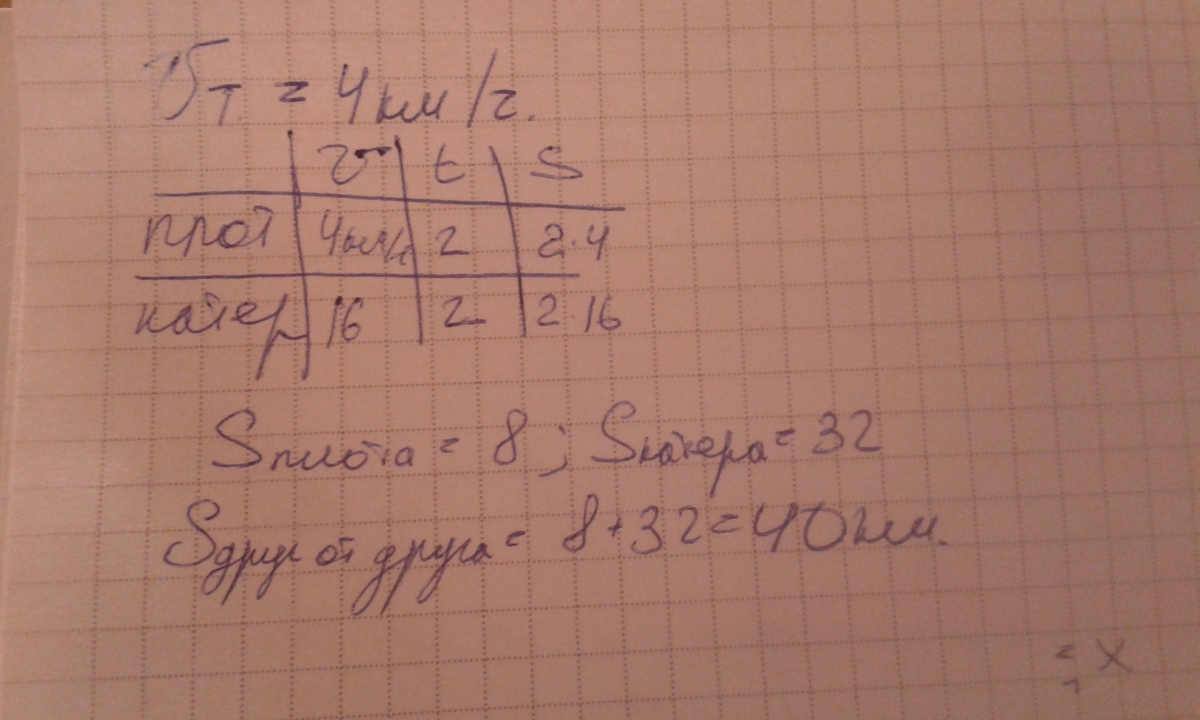 Vт = 4 км/ч.
V t S
плот 4км/ч 2 2·4
катер 16 2 2·16
Sплота = 8; Sкатера = 32
Sдруг от друга = 8+32=40км.
x